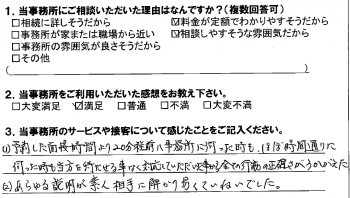 1. 当事務所にご相談いただいた理由はなんですか?(複数回答可)
□相続に詳しそうだから ☑料金が定額でわかりやすそうだから
□事務所が家または職場から近い ☑相談しやすそうな雰囲気だから
□事務所の雰囲気が良さそうだから
□その他
( )
2. 当事務所をご利用いただいた感想をお教え下さい。
□大変満足 ☑満足 □普通 □不満 □大変不満
3. 当事務所のサービスや接客について感じたことをご記入ください。
(1)予約した面接時間より20分程前に事務所に伺った時も、ほぼ時間通りに
伺った時も当方を待たせる事なく対応していただいた事から全ての行動の正確さがうかがえた
(2)あらゆる説明が素人相手に解かり易くていねいでした。